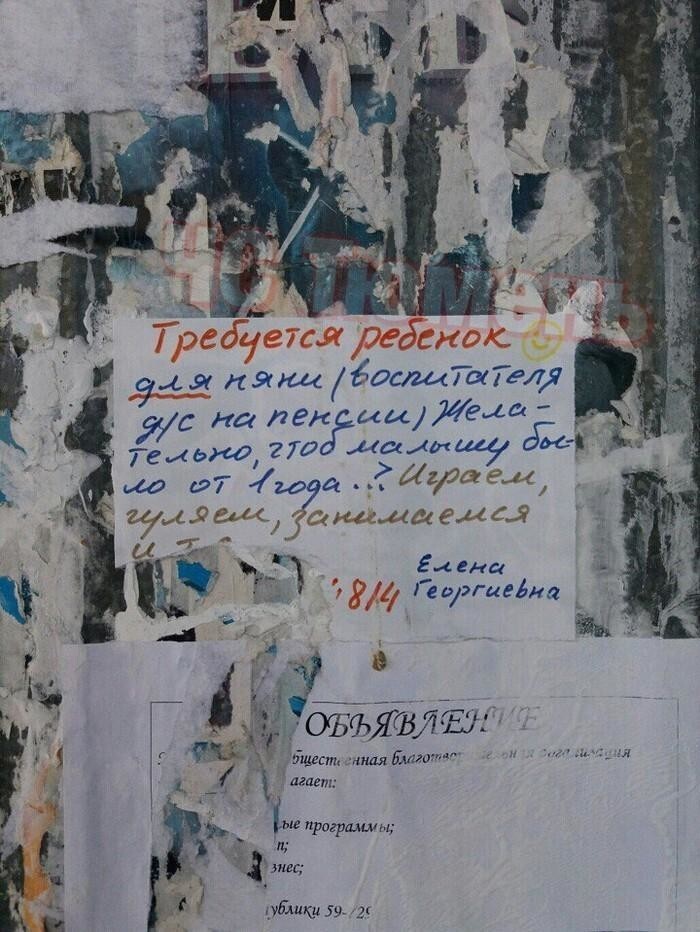 ЧС Тюмень
Требуется ребенок
для няни (воспитателя
д/с на пенсии) Жела-
тельно, чтоб малышу бы-
ло от 1 года... Играем,
гуляем, занимаемся
и т
Елена
Георгиевна
8/4
ОБЪЯВЛЕНИЕ
бщественная благотворительная организация
агает:
ые программы;
п;
знес;
ублики 59-/29